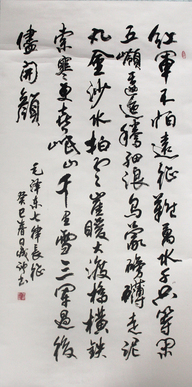 紅軍不怕遠征難万水千山只等閑
五嶺逶迤騰細浪烏蒙磅礴走泥
丸金沙水拍雲崖暖大渡橋橫鐵
索寒更喜岷山千里雪三軍過後
儘開顏
毛澤東七律長征
癸巳春日